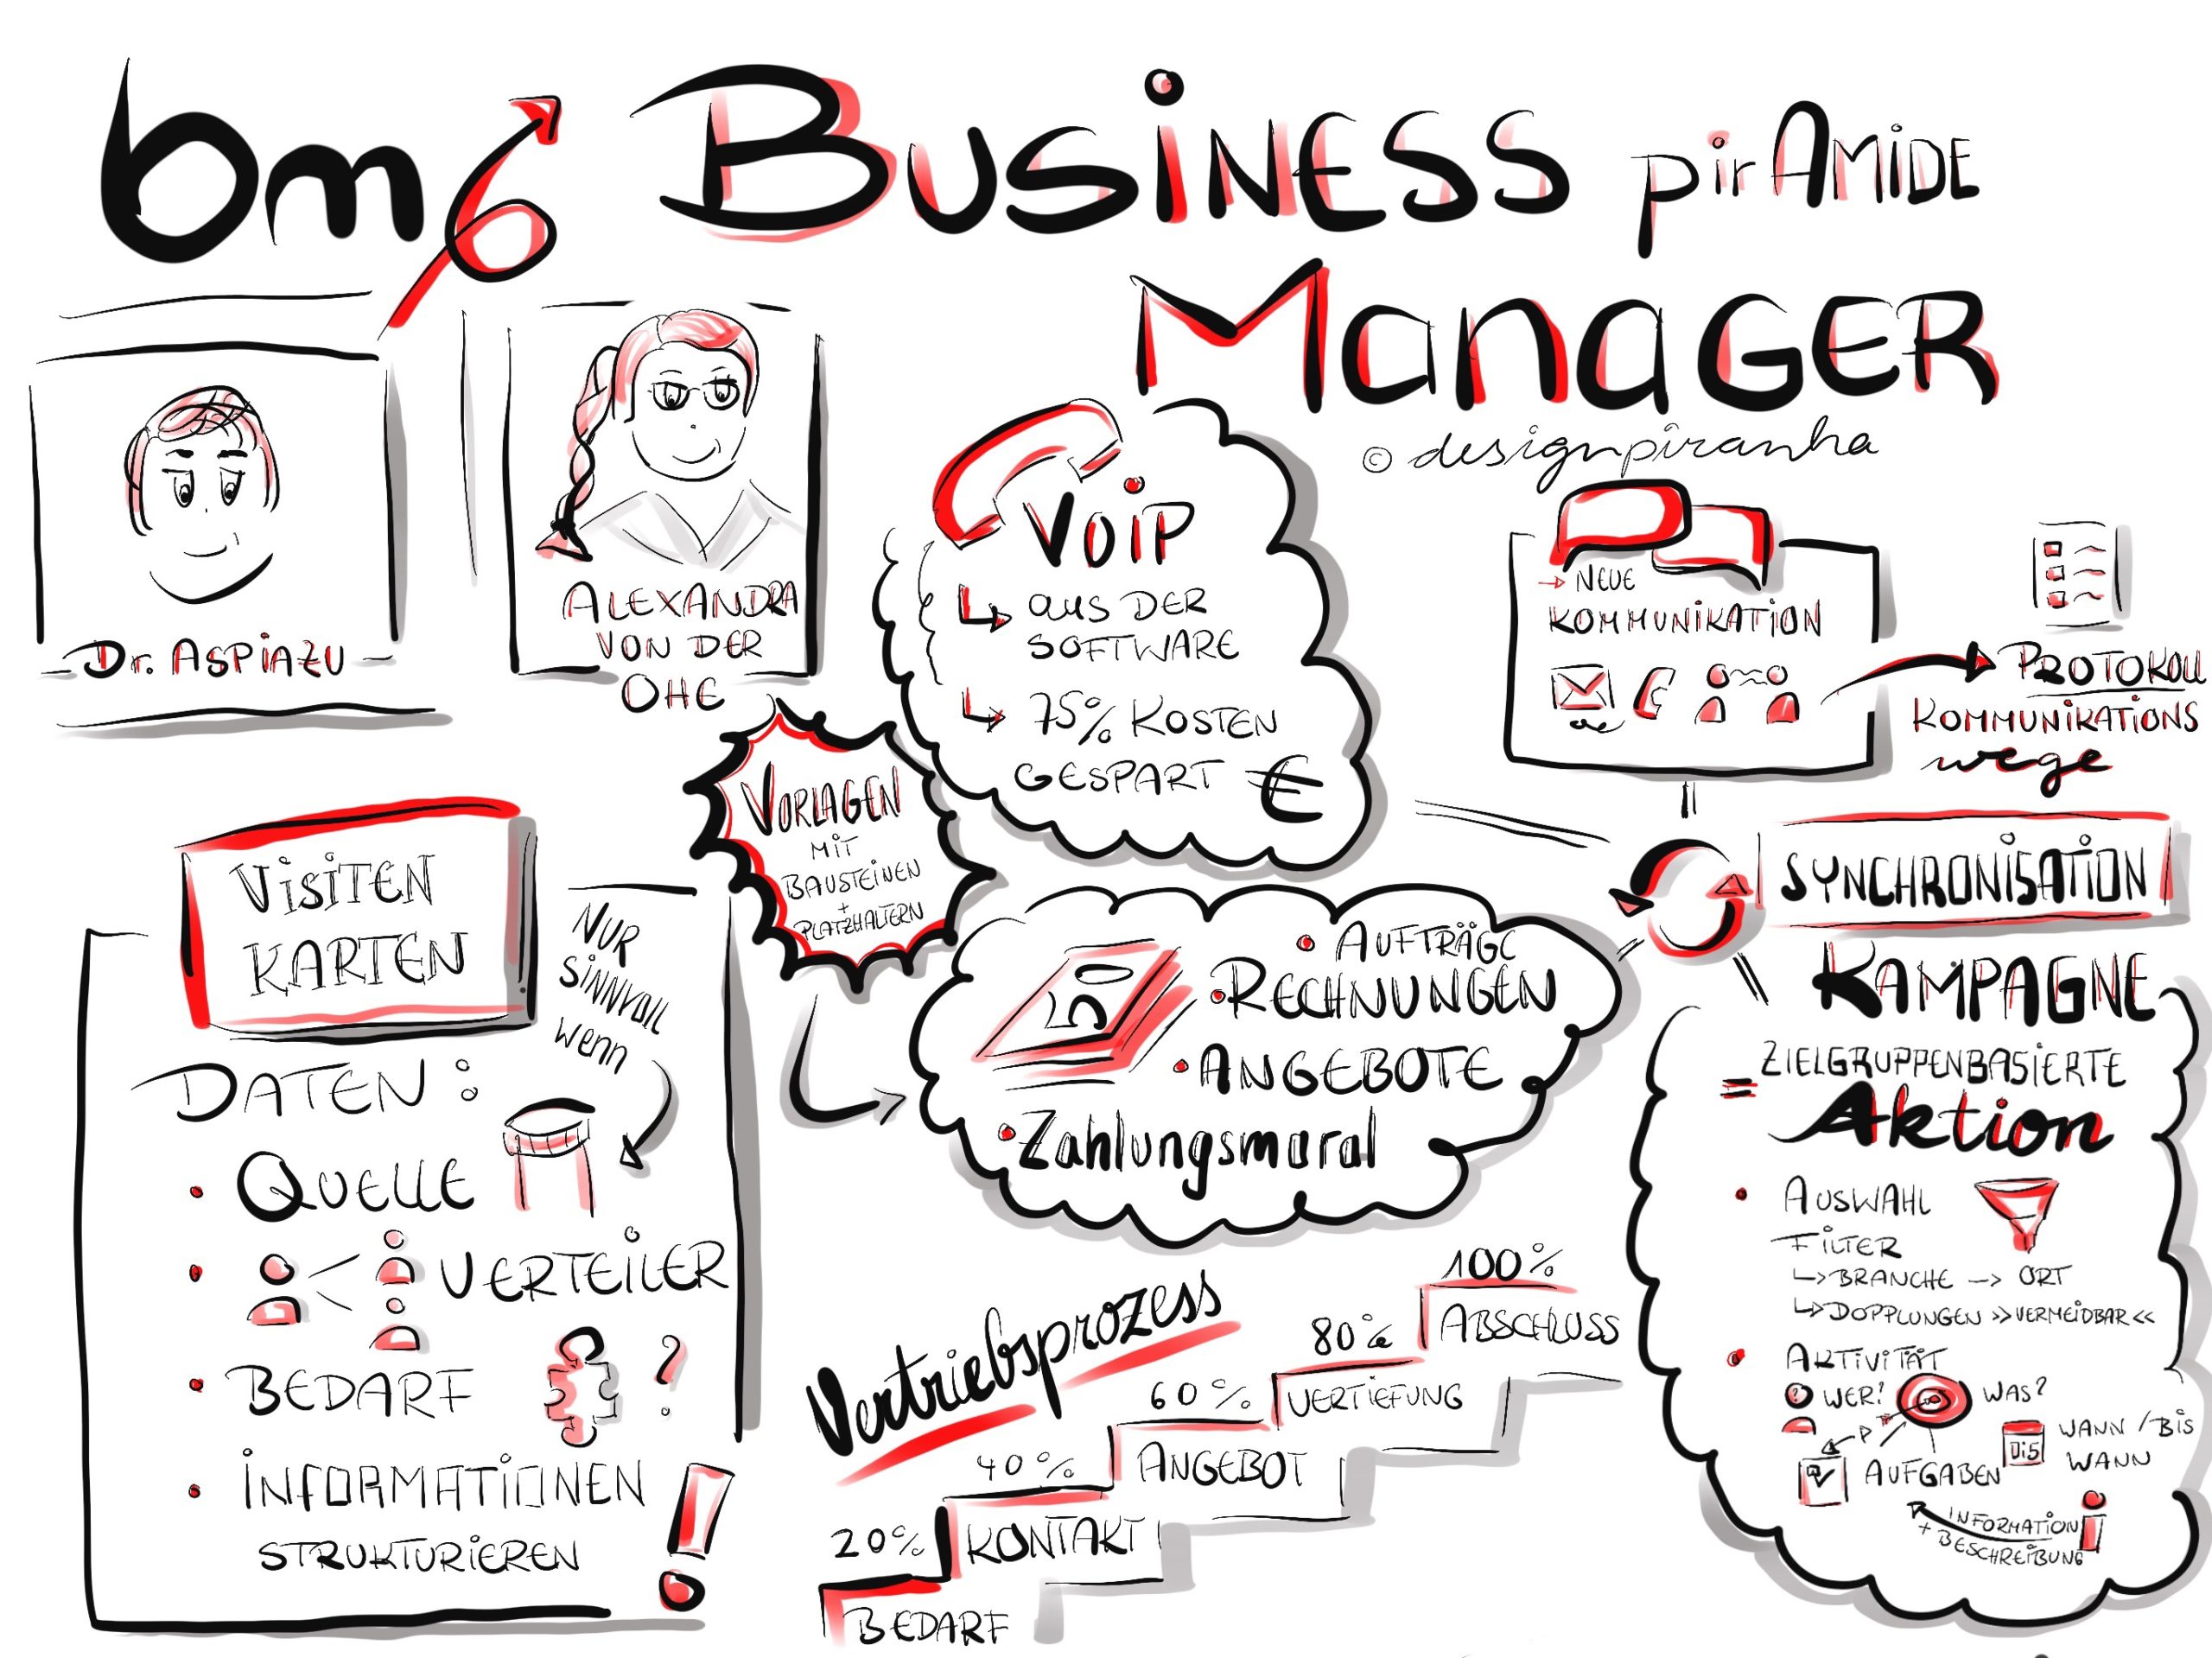 bm6 BUSINESS pirAMIDE
MANAGER
© designpiranha
Dr. ASPIAZU
ALEXANDRA
VON DER
OHE
VOIP
AUS DER
SOFTWARE
75% KOSTEN
GESPART €
→ NEUE
KOMMUNIKATION
PROTOKOLL
KOMMUNIKATIONS
wege
VORLAGEN
MIT
BAUSTEINEN
+
PLATZHALTERN
VISITEN
KARTEN
NUR
SINNVOLL
wenn
DATEN:
• QUELLE
• VERTEILER
• BEDARF ?
• INFORMATIONEN
STRUKTURIEREN !
50
• AUFTRÄGE
• RECHNUNGEN
• ANGEBOTE
• Zahlungsmoral
SYNCHRONISATION
KAMPAGNE
= ZIELGRUPPENBASIERTE
Aktion
• AUSWAHL
FILTER
↳ BRANCHE → ORT
↳ DOPPLUNGEN »VERMEIDBAR«
• AKTIVITÄT
? WER? WAS?
WANN / BIS
WANN
AUFGABEN
INFORMATION
+ BESCHREIBUNG
i
Vertriebsprozess
100%
80% ABSCHLUSS
60% VERTIEFUNG
40% ANGEBOT
20% KONTAKT
BEDARF